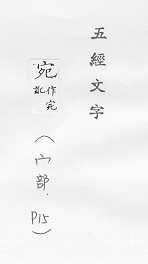 五經文字
宛
作
（宀部．P15）